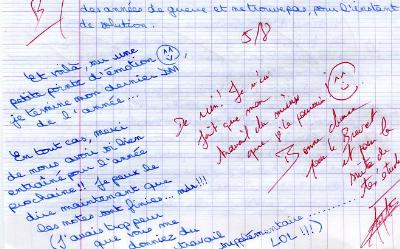 des années de guerre et ne trouve pas, pour l'instant
de solution.
B
5/8
Et voilà sur une
petite pointe d'émotion,
je termine mon dernier DM
de l'année...
En tout cas, merci
de nous avoir si bien
entraîné pour l'année
prochaine!! Je peux le
dire maintenant que
les notes sont finies... mdr!!!
(J'avais trop peur
que vous me
donniez du
travail
supplémentaire ............
LOL !!!)
De rien! Je n'ai
fait que mon
travail du mieux
que j'ai pouvais
Bonne chance
pour le Brevet
et pour la
suite de
tes études